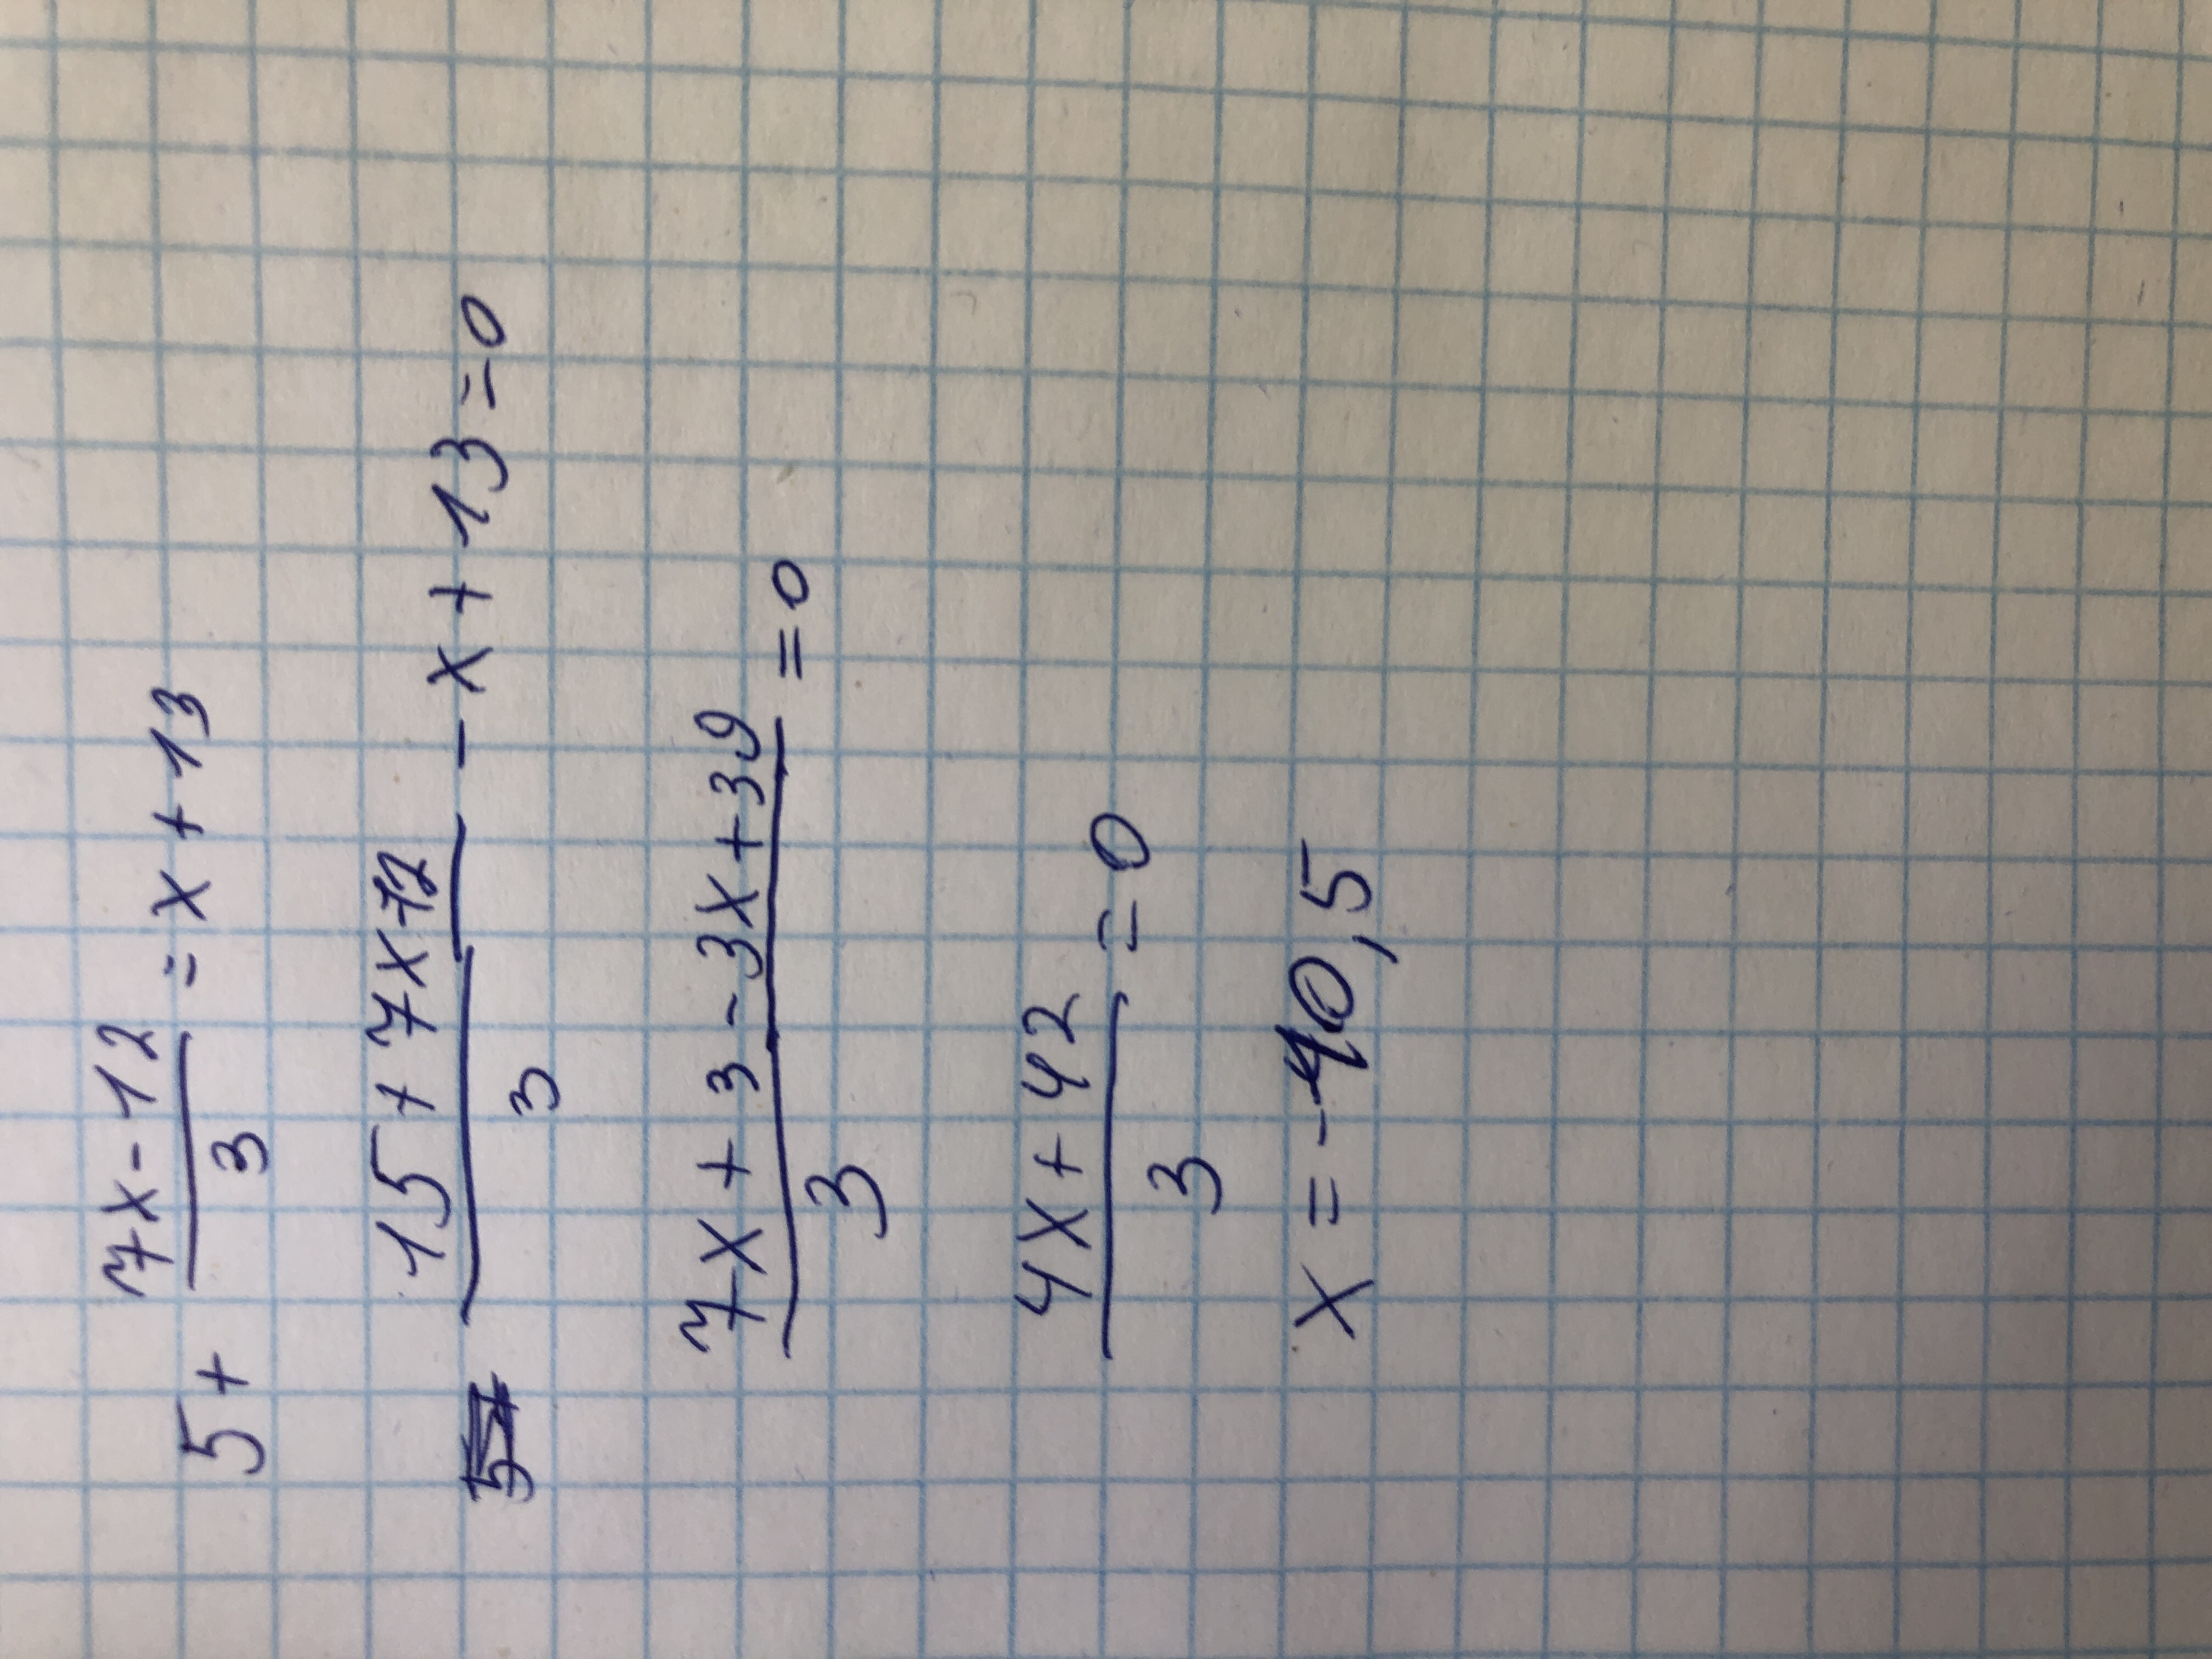 5 + (7x - 12)/3 = x + 13
(15 + 7x - 12)/3 - x + 13 = 0
(7x + 3 - 3x + 39)/3 = 0
(4x + 42)/3 = 0
x = -10,5